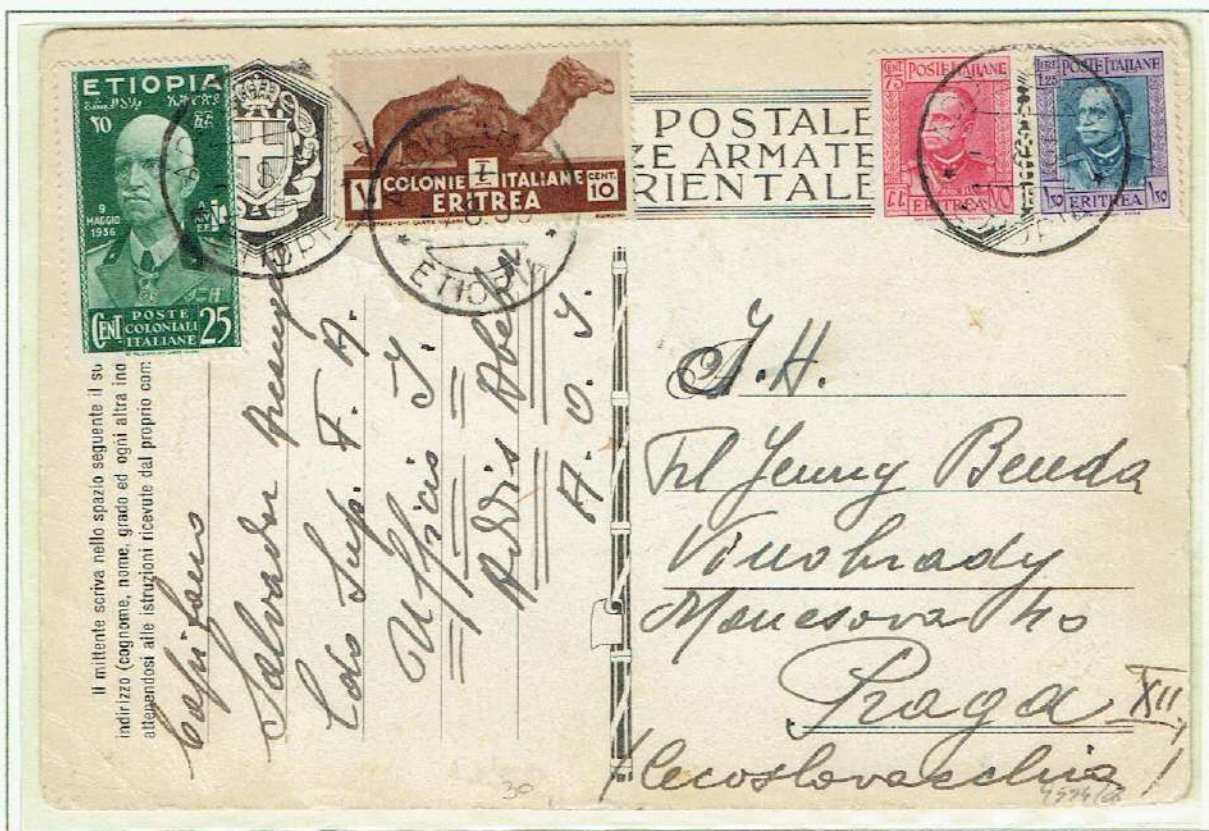 ETIOPIA
٢٥
9
MAGGIO
1936
CENT
POSTE
COLONIALI
ITALIANE
25
COLONIE ITALIANE
CENT.
10
ERITREA
ETIOPIA
POSTALE
ZE ARMATE
RIENTALE
CENT
75
POSTE ITALIANE
ERITREA
LIRE
1.25
POSTE ITALIANE
ERITREA
Il mittente scriva nello spazio seguente il su
indirizzo (cognome, nome, grado ed ogni altra ind
attenendosi alle istruzioni ricevute dal proprio com
Capitano
Salvador
Cdo Sup. F. A.
Ufficio I.
Addis Abeba
A. O. I.
Frl Jenny Benda
Vinohrady
Manesova 40
Praga XII
(Cecoslovacchia)
30